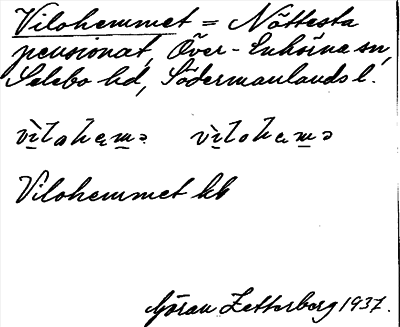 Vilohemmet = Nöttesta
pensionat, Över-Enhörna sn,
Selebo hd, Södermanlands l.
Vilohemmet kb
Göran Zetterberg 1937.